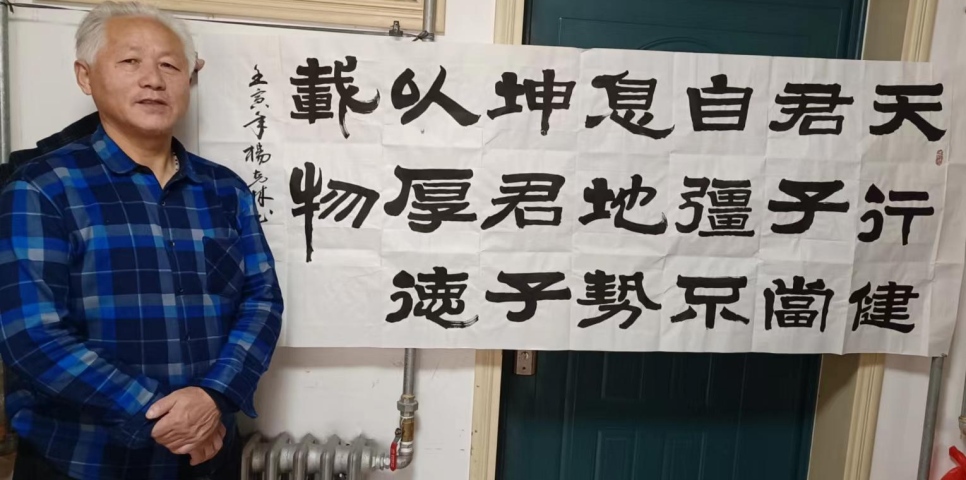 天行健
君子當
自彊不
息地勢
坤君子
以厚德
載物
壬寅年楊